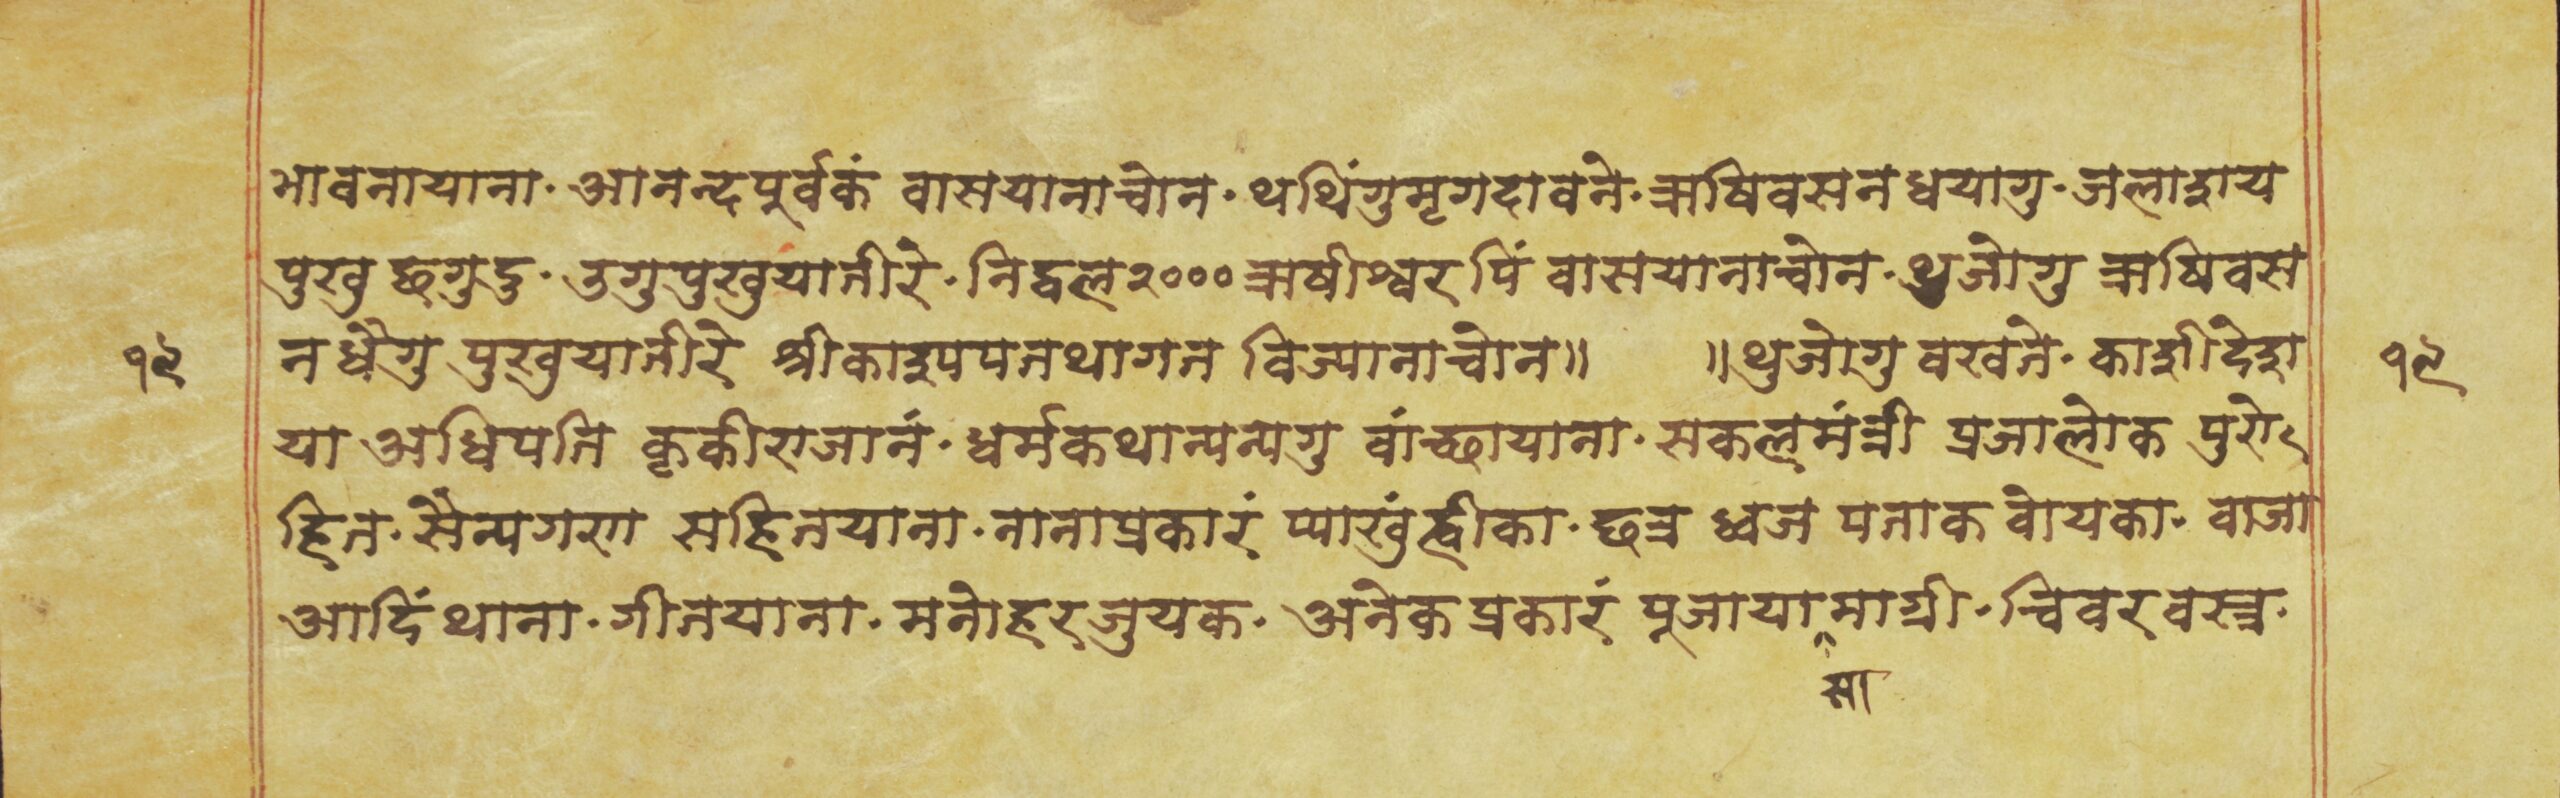 भावनायाना· आनन्दपूर्वकं वासयानाचोन· थथिंगुमृगदावने· ऋषिवसनधयागु· जलाशय
पुखु छगुदु· उगुपुखुयातीरे· निद्वल२००० ऋषीश्वरपिं वासयानाचोन· थुजोगु ऋषिवस
१९ नधैगु पुखुयातीरे श्रीकाश्यपतथागत विज्यानाचोन॥ ॥थुजोगु वखते· काशीदेश १९
या अधिपति कृकीराजानं· धर्मकथान्यन्यगु वांच्छायाना· सकलमंत्री प्रजालोक पुरो
हित· सैन्यगण सहितयाना· नानाप्रकारं प्याखुंह्वीका· छत्र ध्वज पताक वोयका· वाजा
आदिंथाना· गीतयाना· मनोहरजुयक· अनेकप्रकारं पूजायामाग्री· चिवरवस्त्र·
सा